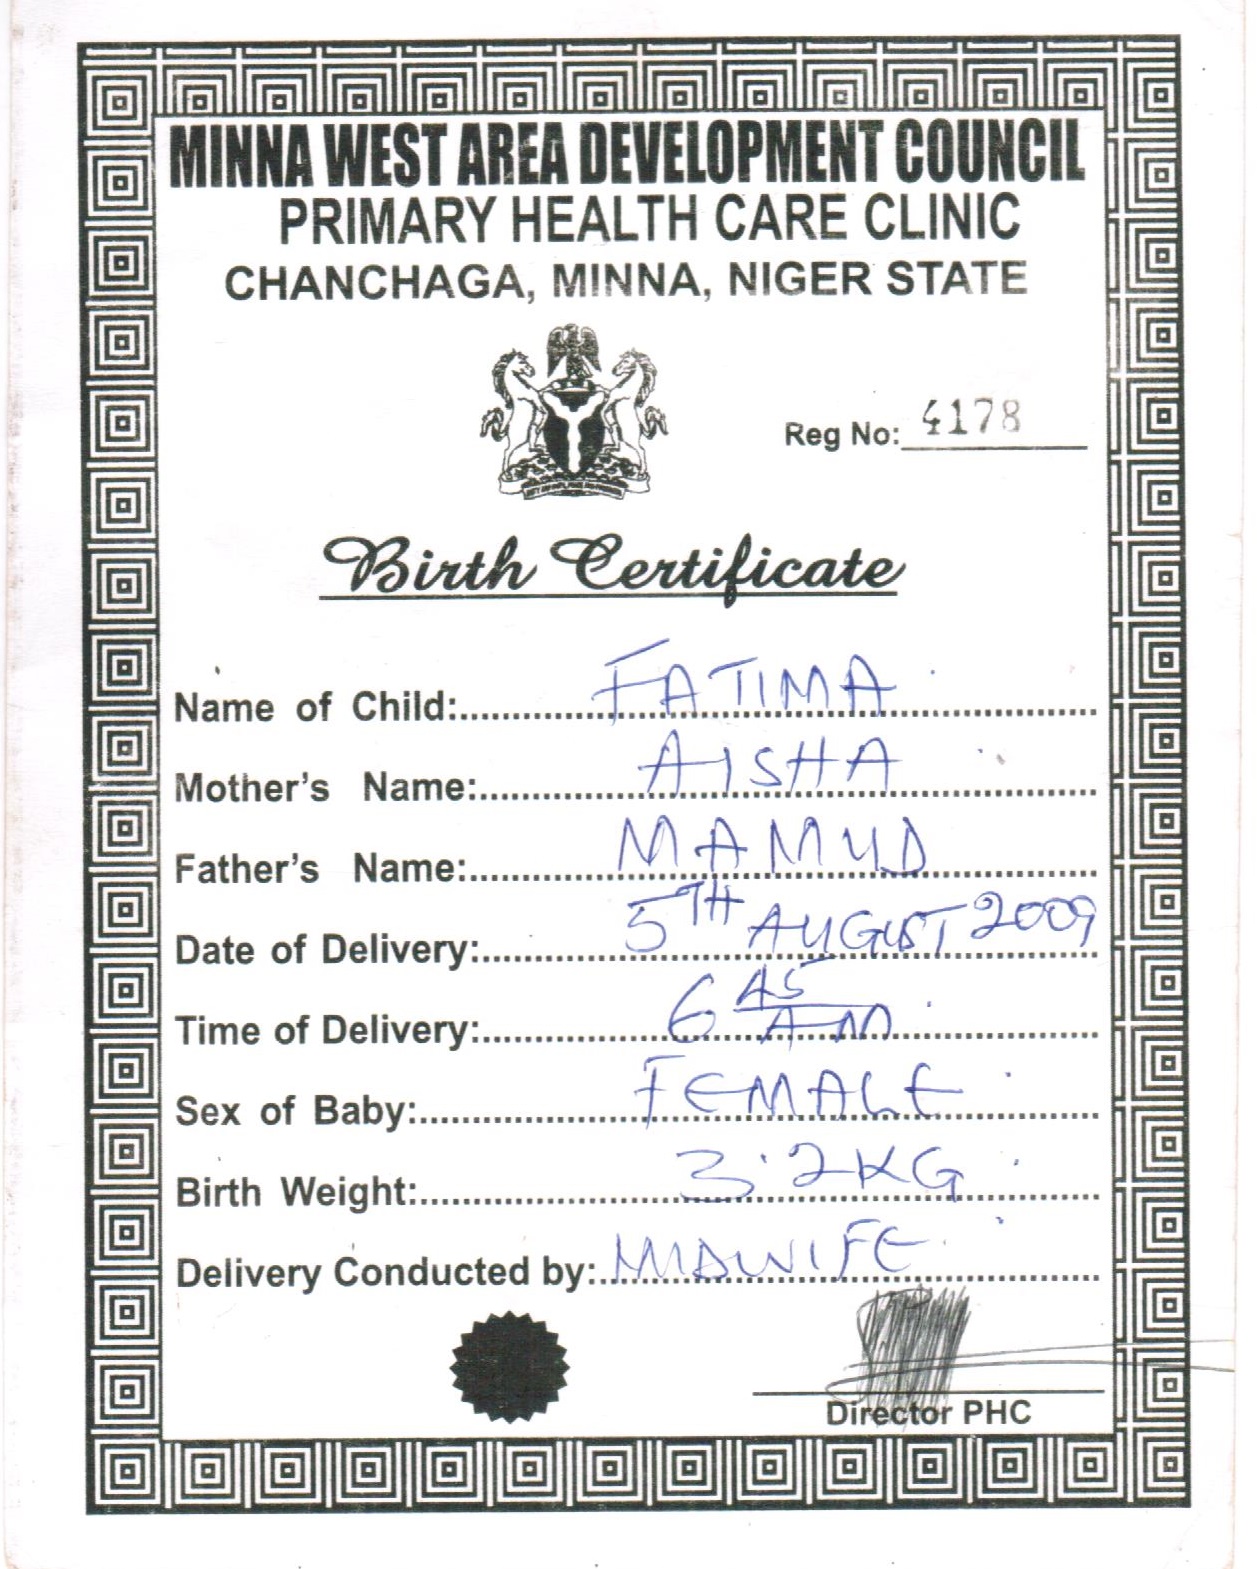 MINNA WEST AREA DEVELOPMENT COUNCIL
PRIMARY HEALTH CARE CLINIC
CHANCHAGA, MINNA, NIGER STATE
Reg No: 4178
Birth Certificate
Name of Child: FATIMA
Mother's Name: AISHA
Father's Name: MAMUD
Date of Delivery: 5TH AUGUST 2009
Time of Delivery: 6 45 AM
Sex of Baby: FEMALE
Birth Weight: 3.2KG
Delivery Conducted by: MIDWIFE
Director PHC